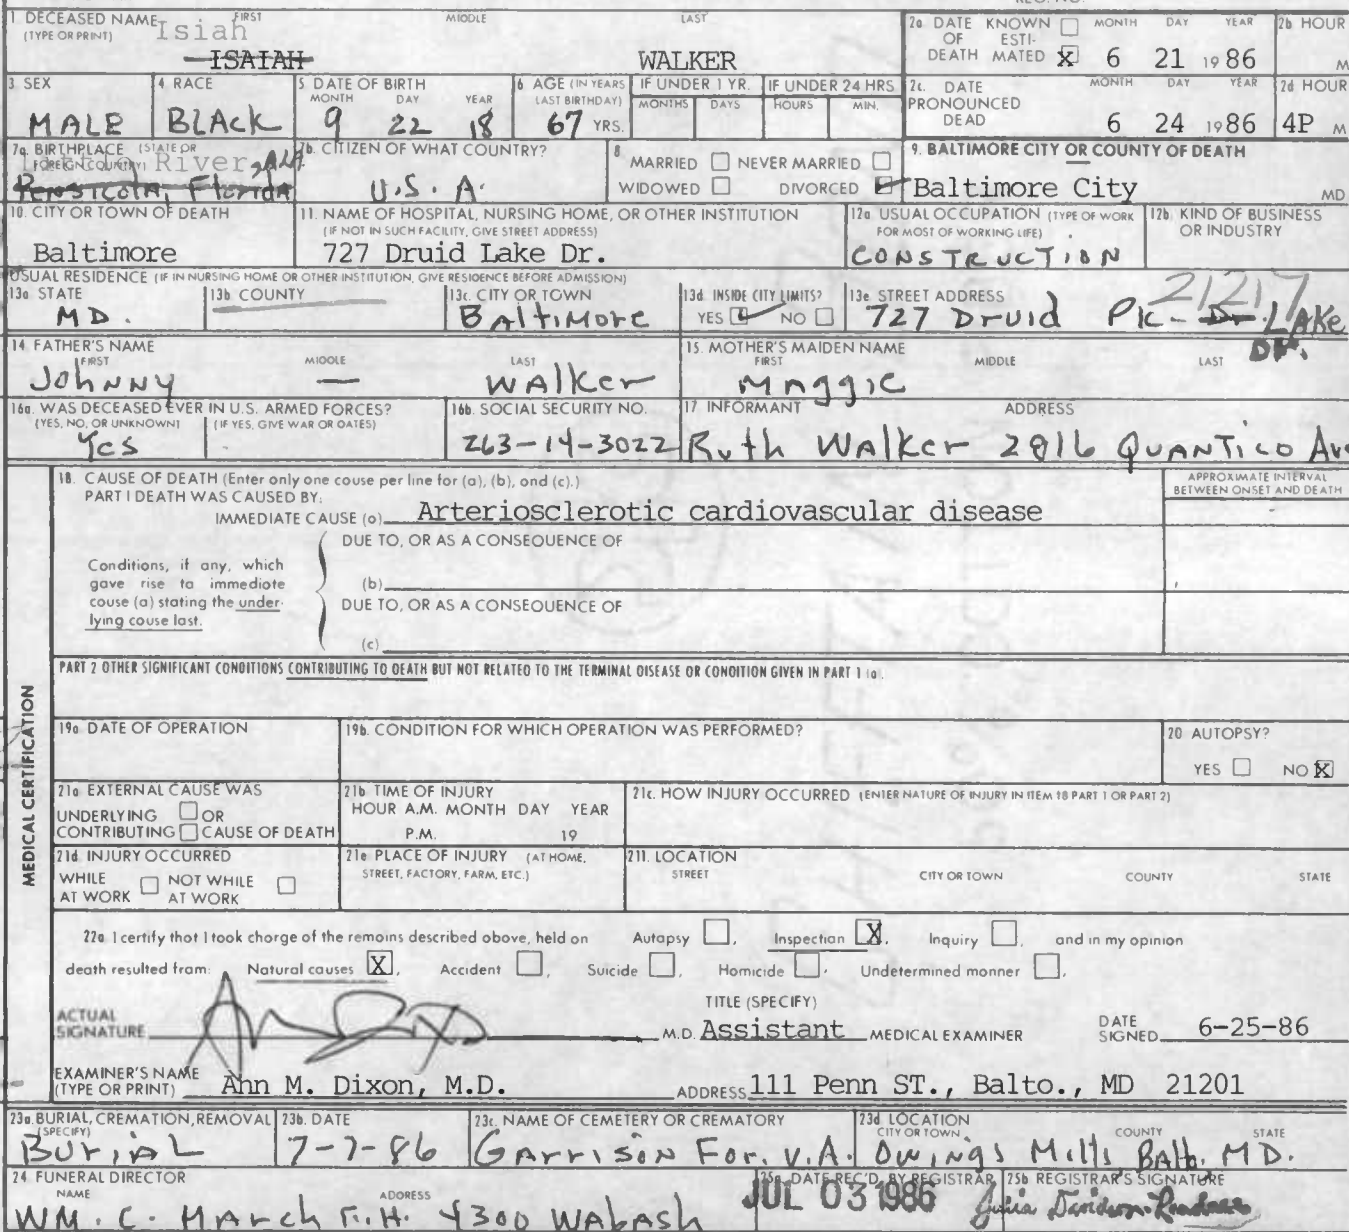 1. DECEASED NAME FIRST MIDDLE LAST
(TYPE OR PRINT) Isiah
ISAIAH WALKER
2a. DATE KNOWN MONTH DAY YEAR 2b HOUR
OF ESTI-
DEATH MATED X 6 21 1986 M
3 SEX
MALE
4 RACE
BLACK
5 DATE OF BIRTH
MONTH DAY YEAR
9 22 18
6 AGE (IN YEARS
LAST BIRTHDAY)
67 YRS.
IF UNDER 1 YR. IF UNDER 24 HRS
MONTHS DAYS HOURS MIN.
2c. DATE MONTH DAY YEAR 2d HOUR
PRONOUNCED
DEAD 6 24 1986 4P M
7a. BIRTHPLACE (STATE OR
FOREIGN COUNTRY) River, ALA
Pensicola, Florida
7b. CITIZEN OF WHAT COUNTRY?
U.S.A.
8
MARRIED NEVER MARRIED
WIDOWED DIVORCED
9. BALTIMORE CITY OR COUNTY OF DEATH
Baltimore City MD
10. CITY OR TOWN OF DEATH
Baltimore
11. NAME OF HOSPITAL, NURSING HOME, OR OTHER INSTITUTION
(IF NOT IN SUCH FACILITY, GIVE STREET ADDRESS)
727 Druid Lake Dr.
12a. USUAL OCCUPATION (TYPE OF WORK
FOR MOST OF WORKING LIFE)
CONSTRUCTION
12b. KIND OF BUSINESS
OR INDUSTRY
USUAL RESIDENCE (IF IN NURSING HOME OR OTHER INSTITUTION, GIVE RESIDENCE BEFORE ADMISSION)
13a. STATE
MD.
13b COUNTY
13c. CITY OR TOWN
BAltiMore
13d. INSIDE CITY LIMITS?
YES NO
13e STREET ADDRESS 21217
727 Druid Pk- Dr. LAke
DR.
14 FATHER'S NAME
FIRST MIDDLE LAST
JohNNY — WAlker
15. MOTHER'S MAIDEN NAME
FIRST MIDDLE LAST
MAggie
16a. WAS DECEASED EVER IN U.S. ARMED FORCES?
(YES, NO, OR UNKNOWN) (IF YES, GIVE WAR OR DATES)
Yes
16b. SOCIAL SECURITY NO.
263-14-3022
17 INFORMANT ADDRESS
Ruth WAlker 2816 QUANTico Ave
MEDICAL CERTIFICATION
18. CAUSE OF DEATH (Enter only one cause per line for (a), (b), and (c).)
PART I DEATH WAS CAUSED BY:
IMMEDIATE CAUSE (a) Arteriosclerotic cardiovascular disease
APPROXIMATE INTERVAL
BETWEEN ONSET AND DEATH
DUE TO, OR AS A CONSEQUENCE OF
Conditions, if any, which
gave rise to immediate
cause (a) stating the under-
lying cause last.
(b)
DUE TO, OR AS A CONSEQUENCE OF
(c)
PART 2 OTHER SIGNIFICANT CONDITIONS CONTRIBUTING TO DEATH BUT NOT RELATED TO THE TERMINAL DISEASE OR CONDITION GIVEN IN PART 1 (a).
19a DATE OF OPERATION
19b. CONDITION FOR WHICH OPERATION WAS PERFORMED?
20 AUTOPSY?
YES NO X
21a EXTERNAL CAUSE WAS
UNDERLYING OR
CONTRIBUTING CAUSE OF DEATH
21b TIME OF INJURY
HOUR A.M. MONTH DAY YEAR
P.M. 19
21c. HOW INJURY OCCURRED (ENTER NATURE OF INJURY IN ITEM 18 PART 1 OR PART 2)
21d INJURY OCCURRED
WHILE NOT WHILE
AT WORK AT WORK
21e PLACE OF INJURY (AT HOME,
STREET, FACTORY, FARM, ETC.)
21f. LOCATION
STREET CITY OR TOWN COUNTY STATE
22a I certify that I took charge of the remains described above, held on Autopsy , Inspection X, Inquiry , and in my opinion
death resulted from: Natural causes X, Accident , Suicide , Homicide , Undetermined manner ,
ACTUAL
SIGNATURE
TITLE (SPECIFY)
M.D. Assistant MEDICAL EXAMINER
DATE
SIGNED 6-25-86
EXAMINER'S NAME
(TYPE OR PRINT) Ann M. Dixon, M.D. ADDRESS 111 Penn ST., Balto., MD 21201
23a. BURIAL, CREMATION, REMOVAL
(SPECIFY)
BuriAL
23b. DATE
7-7-86
23c. NAME OF CEMETERY OR CREMATORY
GArrisoN For. V.A.
23d LOCATION
CITY OR TOWN COUNTY STATE
OwiNgs Mills BAlto. MD.
24 FUNERAL DIRECTOR
NAME ADDRESS
WM. C. MArch F.H. 4300 WAbAsh
25a. DATE REC'D. BY REGISTRAR
JUL 03 1986
25b REGISTRAR'S SIGNATURE
Julia Davidson-Randall